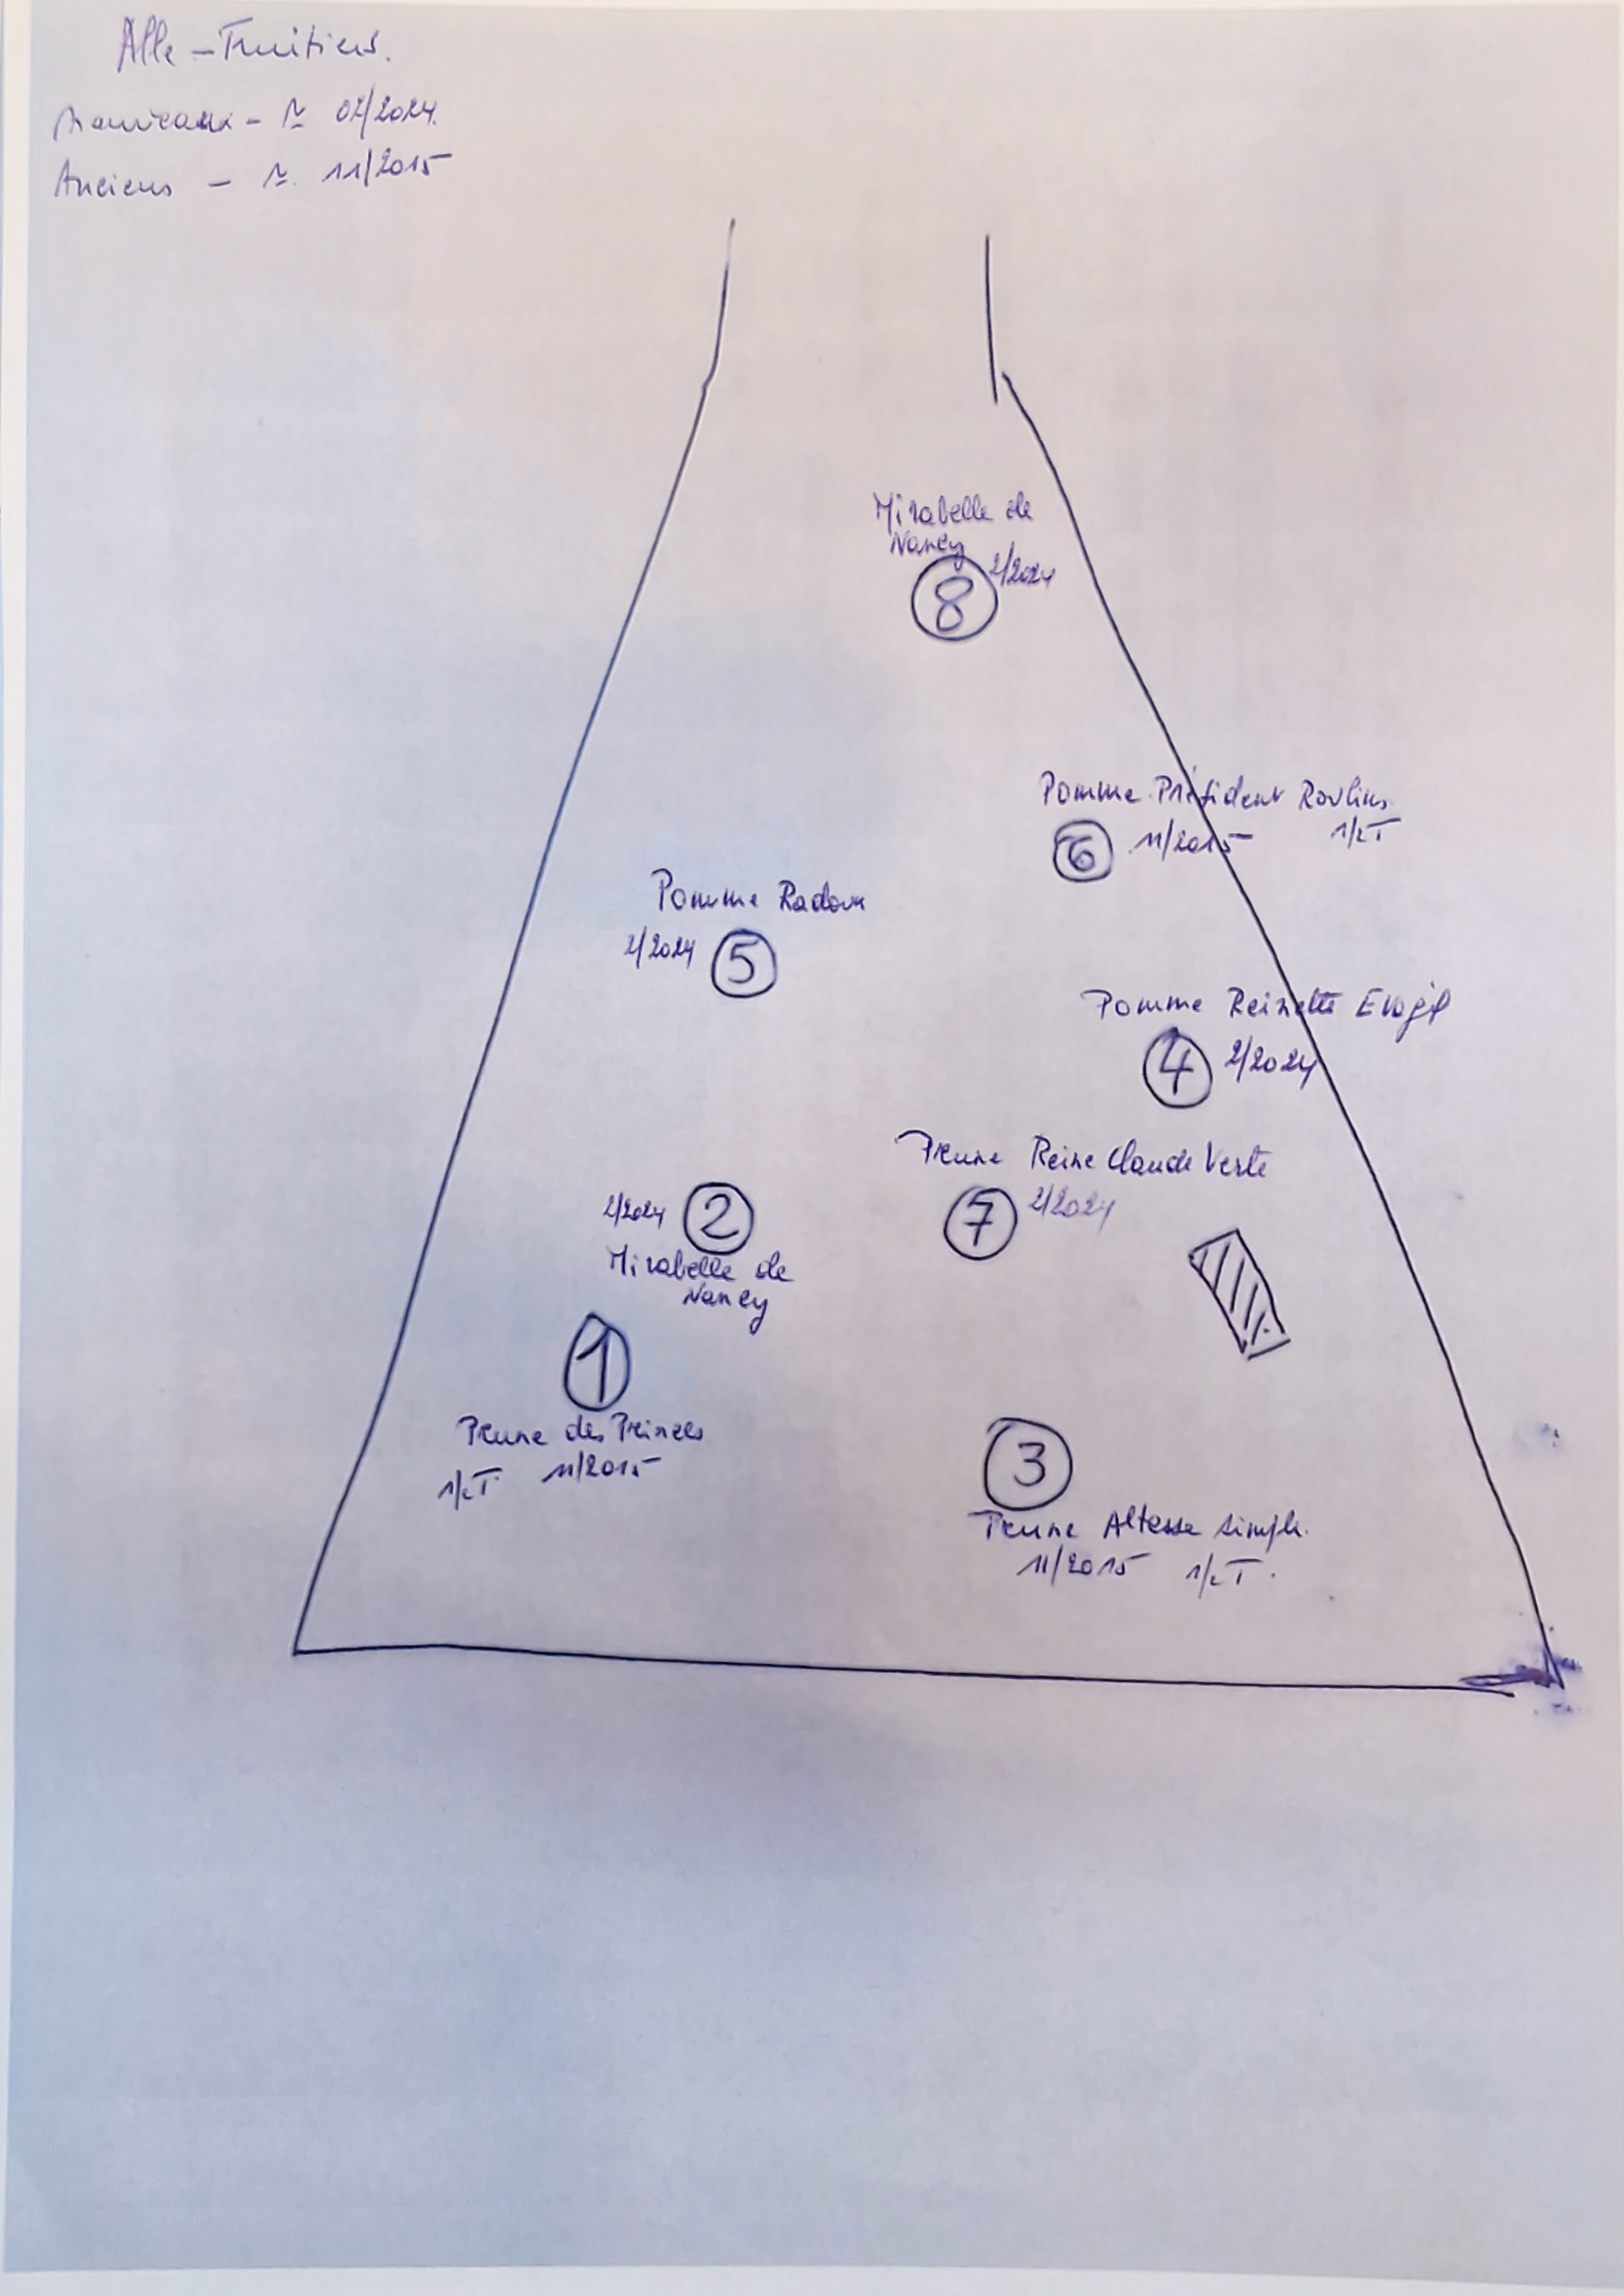 Alle - Fruitiers.
Nouveaux - ≃ 02/2024.
Anciens - ≃ 11/2015
Mirabelle de
Nancy
2/2024
8
Pomme Président Roulin
6 11/2015 1/2T
Pomme Radoux
2/2024 5
Pomme Reinette Evagil
4 2/2024
Prune Reine Claude Verte
7 2/2024
2/2024 2
Mirabelle de
Nancy
1
Prune des Princes
1/2T 11/2015
3
Prune Altesse simple
11/2015 1/2T.